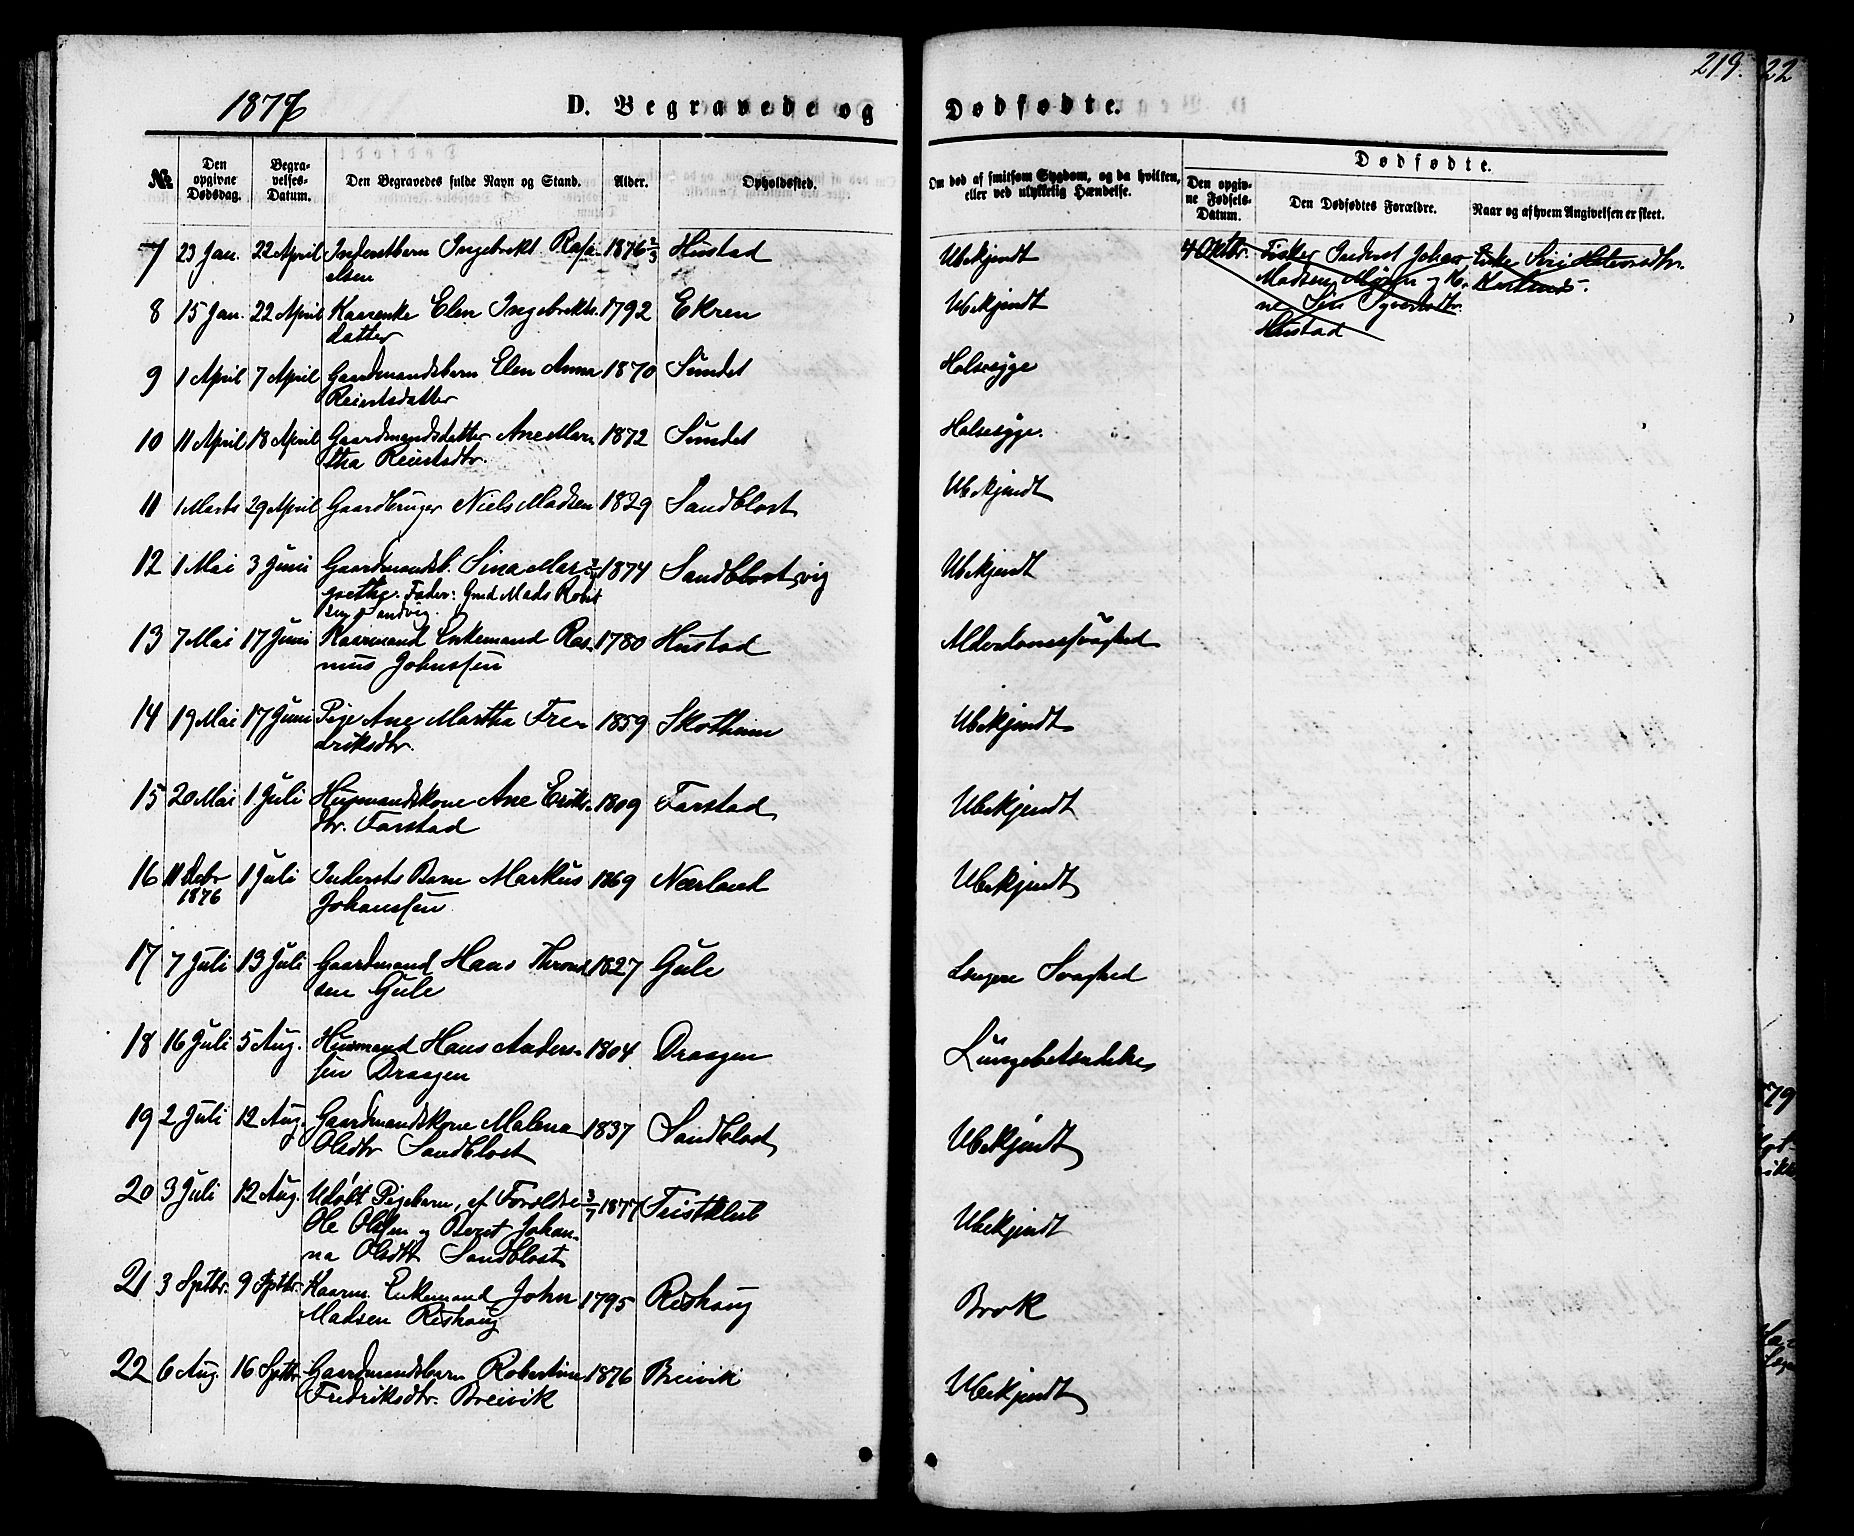 1877
D. Begravede og
Dødfødte.
219.
22
№
Den opgivne Dødsdag.
Begravelses-Datum.
Den Begravedes fulde Navn og Stand.
Alder.
Opholdssted.
Om død af smitsom Sygdom, og da hvilken, eller ved ulykkelig Hændelse.
Dødfødte.
Den opgivne Fødsels-Datum.
Den Dødfødtes Forældre.
Naar og af hvem Angivelsen er sleet.
7 23 Jan. 22 April Inderstbarn Ingebrekt Rafa- 1876 2/3 Hustad Ubekjendt 4 Oktbr. Fisker Inderst Johan Enke Siri
elsen Madsen og K.
ne Siri Syvertsdtr.
Hustad
8 15 Jan. 22 April Kaarenke Elen Ingebrekts- 1792 Ekren Ubekjendt
datter
9 1 April 7 April Gaardmandsbarn Elen Anna 1870 Sundet Halssyge
Reiertsdatter
10 11 April 18 April Gaardmandsdatter Ane Mar- 1872 Sundet Halssyge.
tha Reiertsdtr.
11 1 Marts 29 April Gaardbruger Niels Madsen 1829 Sandblost Ubekjendt
12 1 Mai 3 Juni Gaardmandsb. Sina Mar- 1874 Sandblostvig Ubekjendt
grethe. Fader: Gmd Mads Robt
sen
13 7 Mai 17 Juni Kaarmand Enkemand Ras- 1780 Hustad Alderdomssvaghed
mus Johnssen
14 19 Mai 17 Juni Pige Ane Martha Fre- 1859 Skotheim Ubekjendt
driksdtr.
15 20 Mai 1 Juli Husmandskone Ane Eriks- 1809 Farstad Ubekjendt
dtr. Farstad
16 11 Debr 1 Juli Inderst Barn Markus 1869 Nærland Ubekjendt
1876 Johanssen
17 7 Juli 13 Juli Gaardmand Hans Thrond- 1827 Gule Længere Svaghed
sen Gule
18 16 Juli 5 Aug. Husmand Hans Anders- 1804 Draagen Lungebetændelse
sen Draagen
19 2 Juli 12 Aug. Gaardmandskone Malena 1837 Sandblost Ubekjendt
Olsdtr Sandblost
20 3 Juli 12 Aug. Udøbt Pigebarn, af Forældre 3/7 1877 Ubekjendt
Ole Olsen og Beret Johan-
na Olsdtr Sandblost
21 3 Sptbr. 9 Sptbr. Kaarm. Enkemand John 1795 Rishaug Brok
Madsen Rishaug
22 6 Aug. 16 Sptbr. Gaardmandsbarn Robertine 1876 Breivik Ubekjendt
Fredriksdtr. Breivik